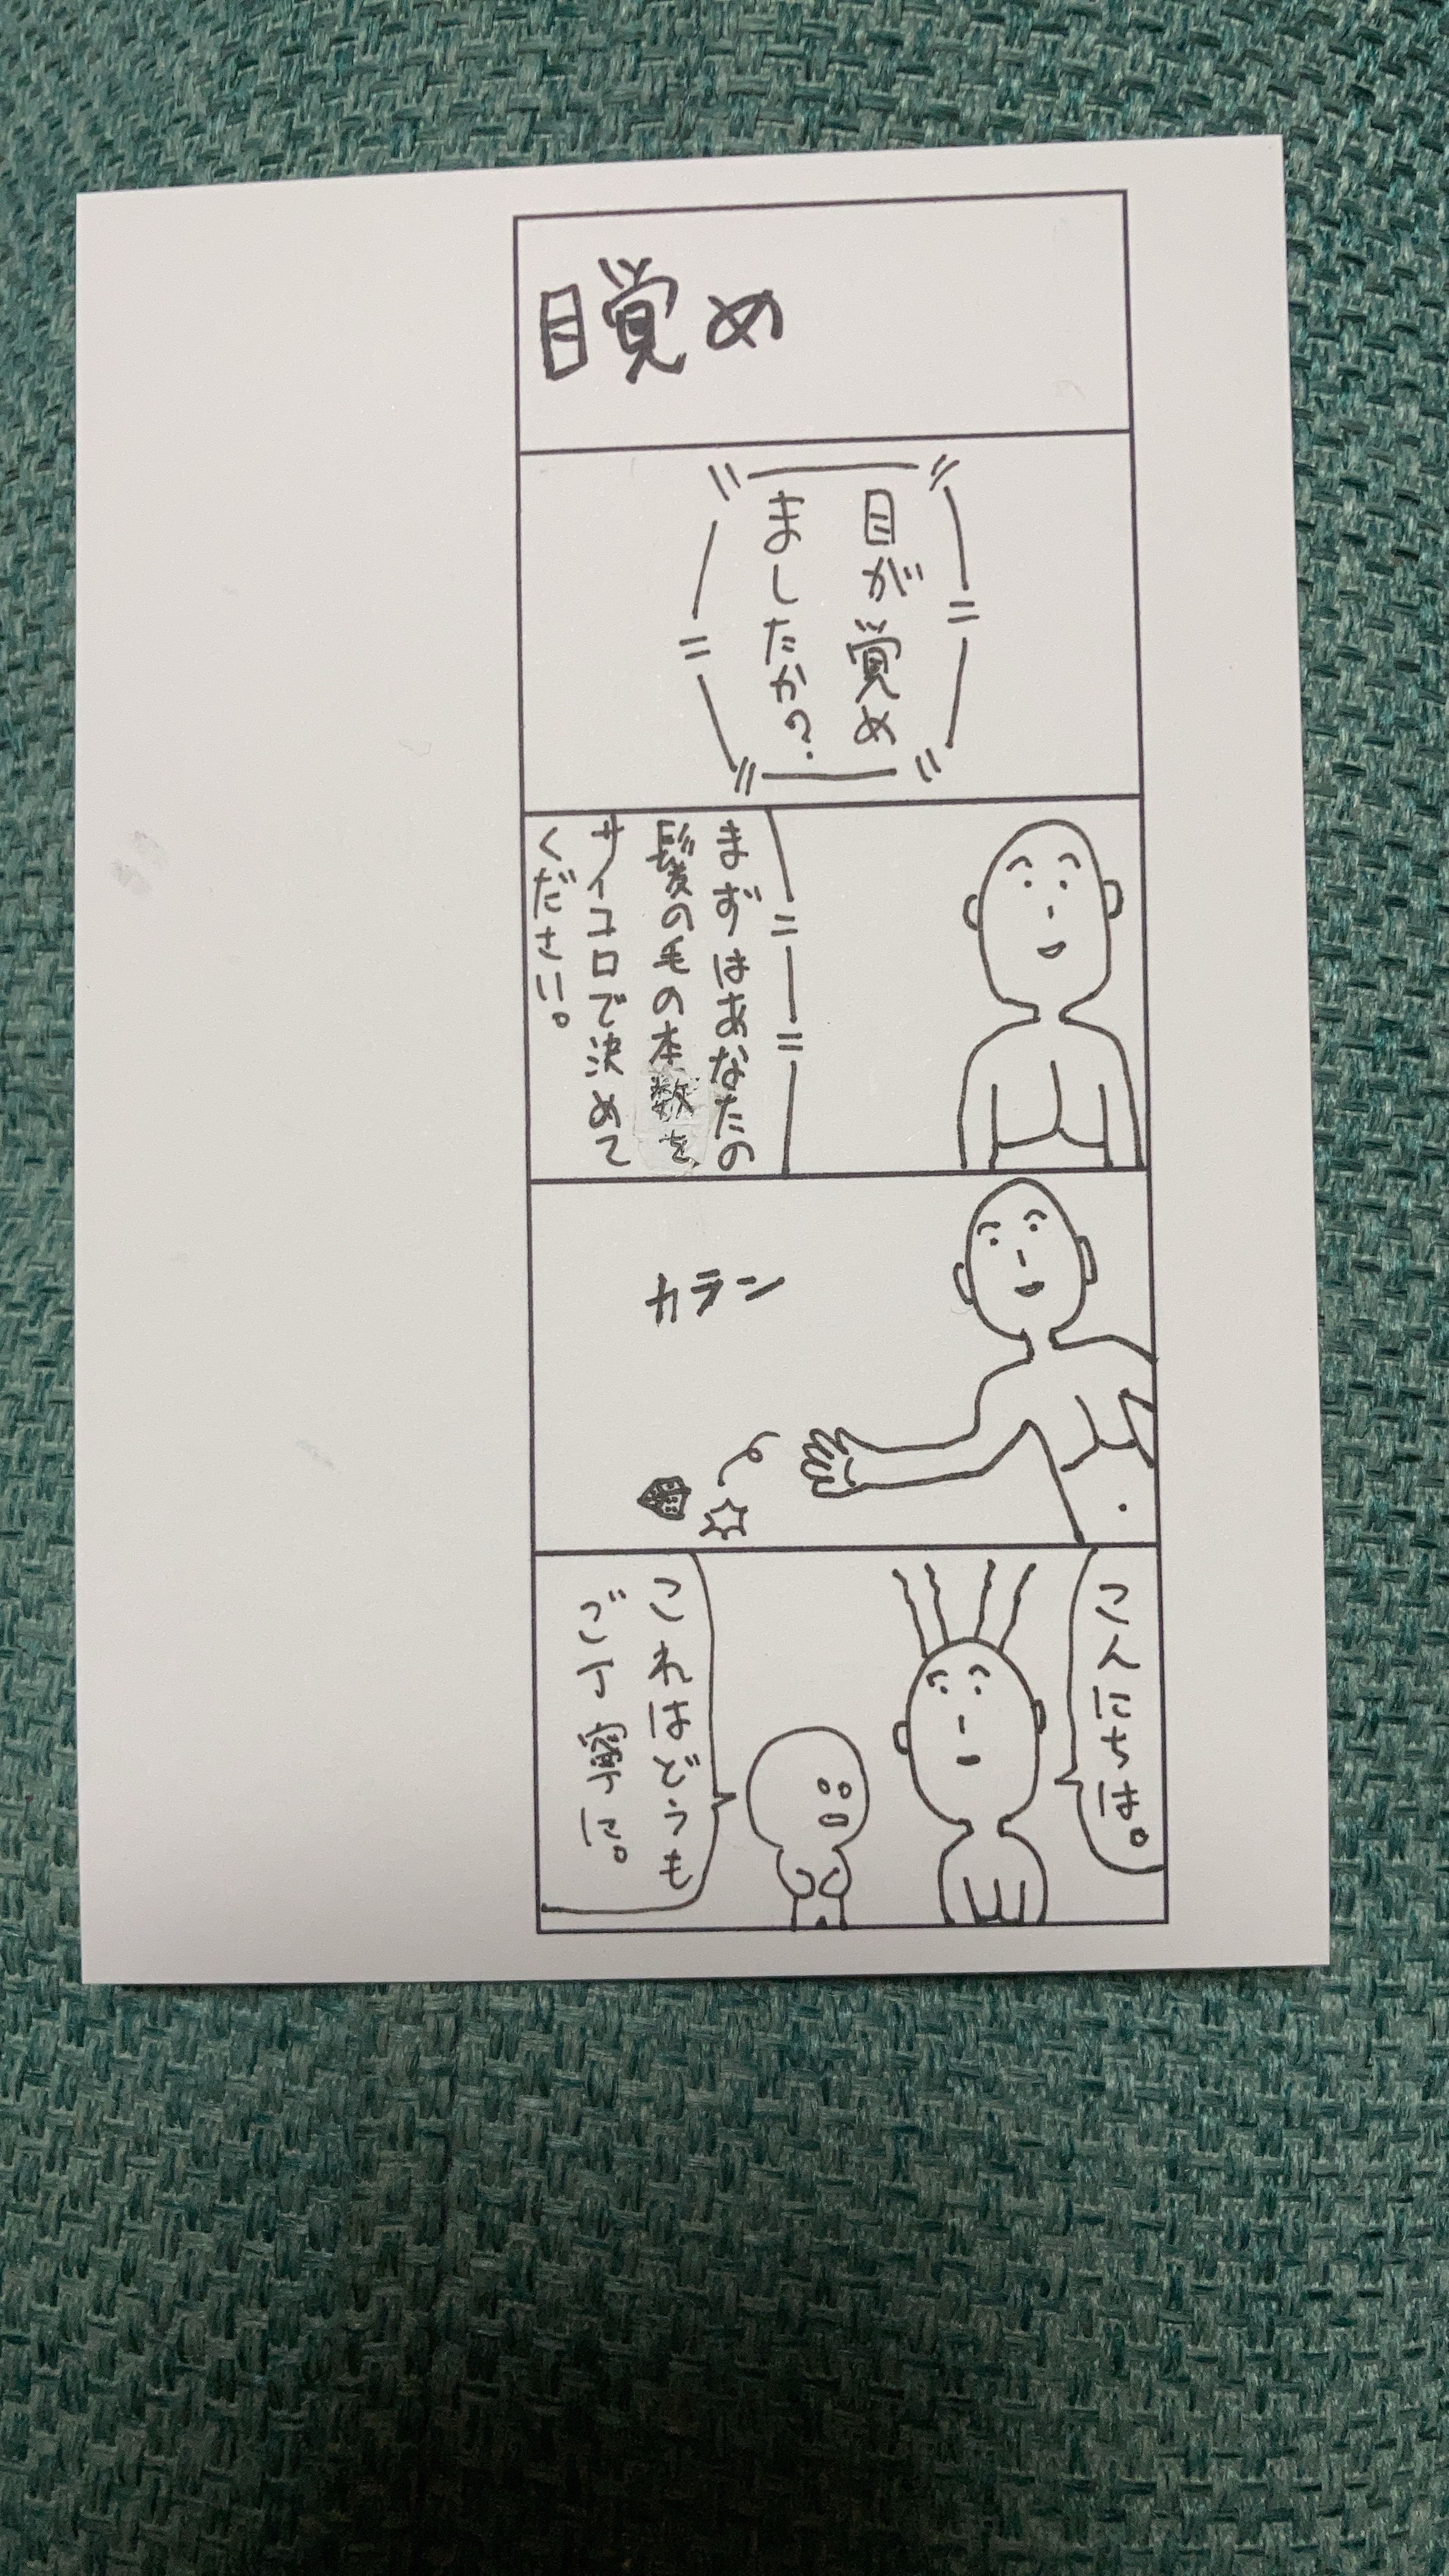 目覚め
目が覚め
ましたか?
まずはあなたの
髪の毛の本数を
サイコロで決めて
ください。
カラン
こんにちは。
これはどうも
ご丁寧に。